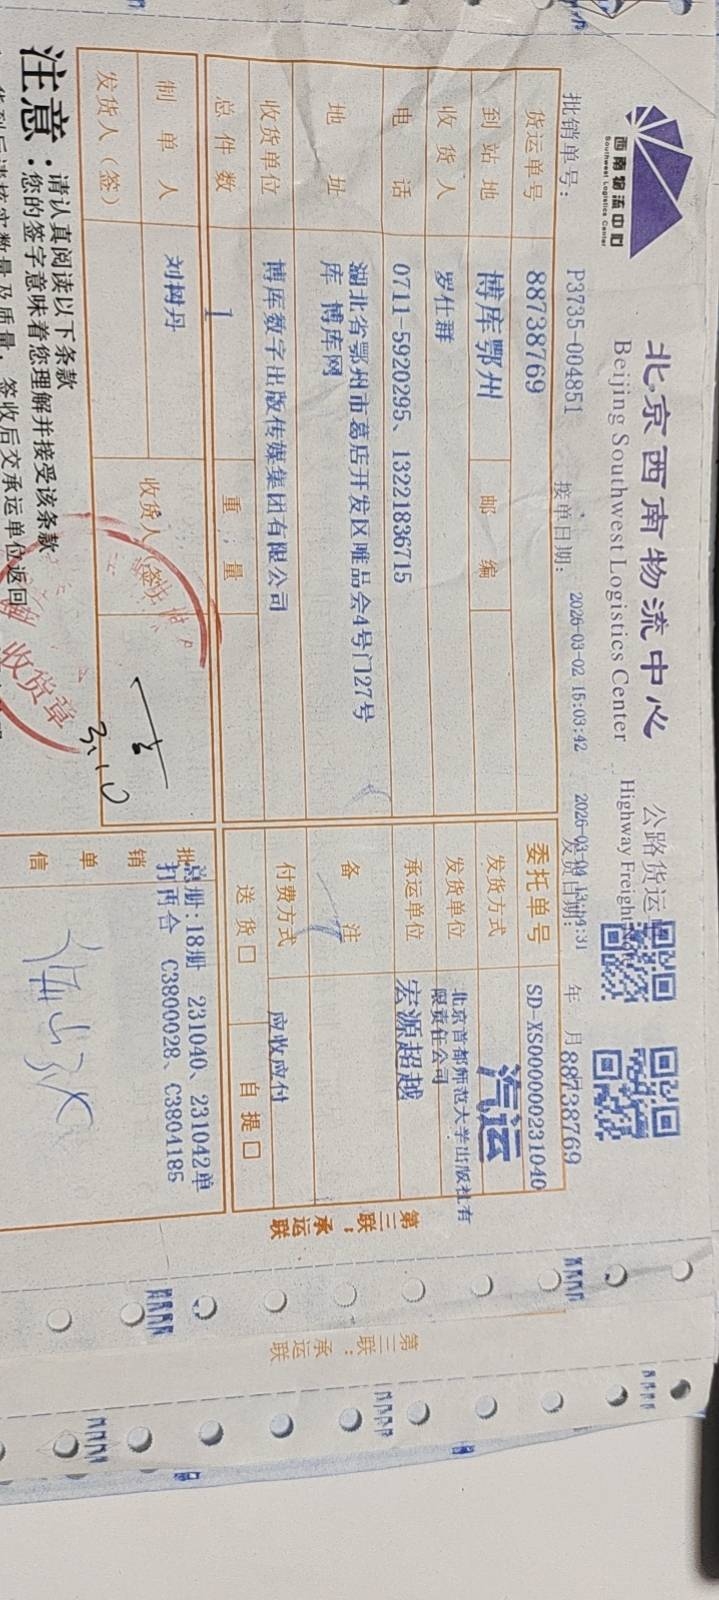 西南物流中心
Southwest Logistics Center
北京西南物流中心
Beijing Southwest Logistics Center
公路货运
Highway Freight
批销单号：
P3735-004851
接单日期：
2026-03-02 15:03:42
发货日期：
年 月
88738769
货运单号
88738769
委托单号
SD-XS000000231040
到站地
博库鄂州
邮编
发货方式
汽运
收货人
罗仕群
发货单位
北京首都师范大学出版社有
限责任公司
电话
0711-5920295、13221836715
承运单位
宏源超越
地址
湖北省鄂州市葛店开发区唯品会4号门27号
库 博库网
备注
收货单位
博库数字出版传媒集团有限公司
付费方式
应收应付
总件数
1
重量
送货□
自提□
制单人
刘树丹
收货人（签）
发货人（签）
收货章
3.10
批销单信
总册:18册 231040、231042单
打两合 C3800028、C3804185
第三联：承运联
第三联：承运联
注意：
请认真阅读以下条款
您的签字意味着您理解并接受该条款
签收后交承运单位返回